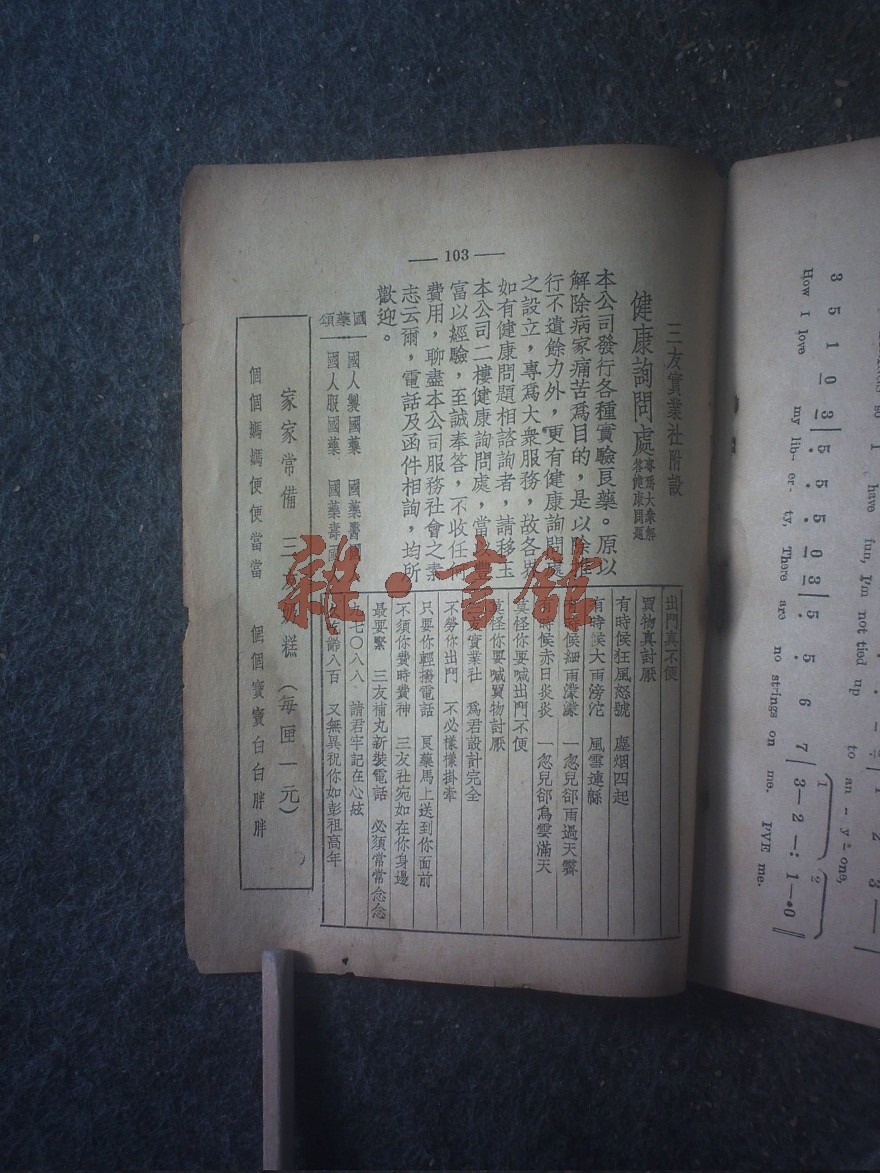 — 103 —
三友實業社附設
健康詢問處
專爲大衆解
答健康問題
本公司發行各種實驗良藥。原以
解除病家痛苦爲目的，是以除推
行不遺餘力外，更有健康詢問處
之設立，專爲大衆服務，故各界
如有健康問題相諮詢者，請移玉
本公司二樓健康詢問處，當以豐
富以經驗，至誠奉答，不收任何
費用，聊盡本公司服務社會之素
志云爾，電話及函件相詢，均所
歡迎。
國藥頌
國人製國藥 國藥醫國
國人服國藥 國藥壽國
出門真不便
買物真討厭
有時候狂風怒號 塵烟四起
有時候大雨滂沱 風雲連緜
有時候細雨濛濛 一忽兒郤雨過天霽
時候赤日炎炎 一忽兒郤烏雲滿天
莫怪你要喊出門不便
莫怪你要喊買物討厭
實業社 爲君設計完全
不勞你出門 不必樣樣掛牽
只要你輕撥電話 良藥馬上送到你面前
不須你費時費神 三友社宛如在你身邊
最要緊 三友補丸新裝電話 必須常常念念
九七〇八八 請君牢記在心絃
吃齡八百 又無異祝你如彭祖高年
家家常備 三友奶糕 （每匣一元）
個個媽媽便便當當 個個寶寶白白胖胖
雜·書館
I have fun, I'm not tied up to an - y - one,
3 5 1 0 3 | 5 5 5 0 3 | 5 5 6 7 | 3 — 2 — : 1 — • 0 ‖
How I love my lib- er- ty, There are no strings on me. I'VE me.